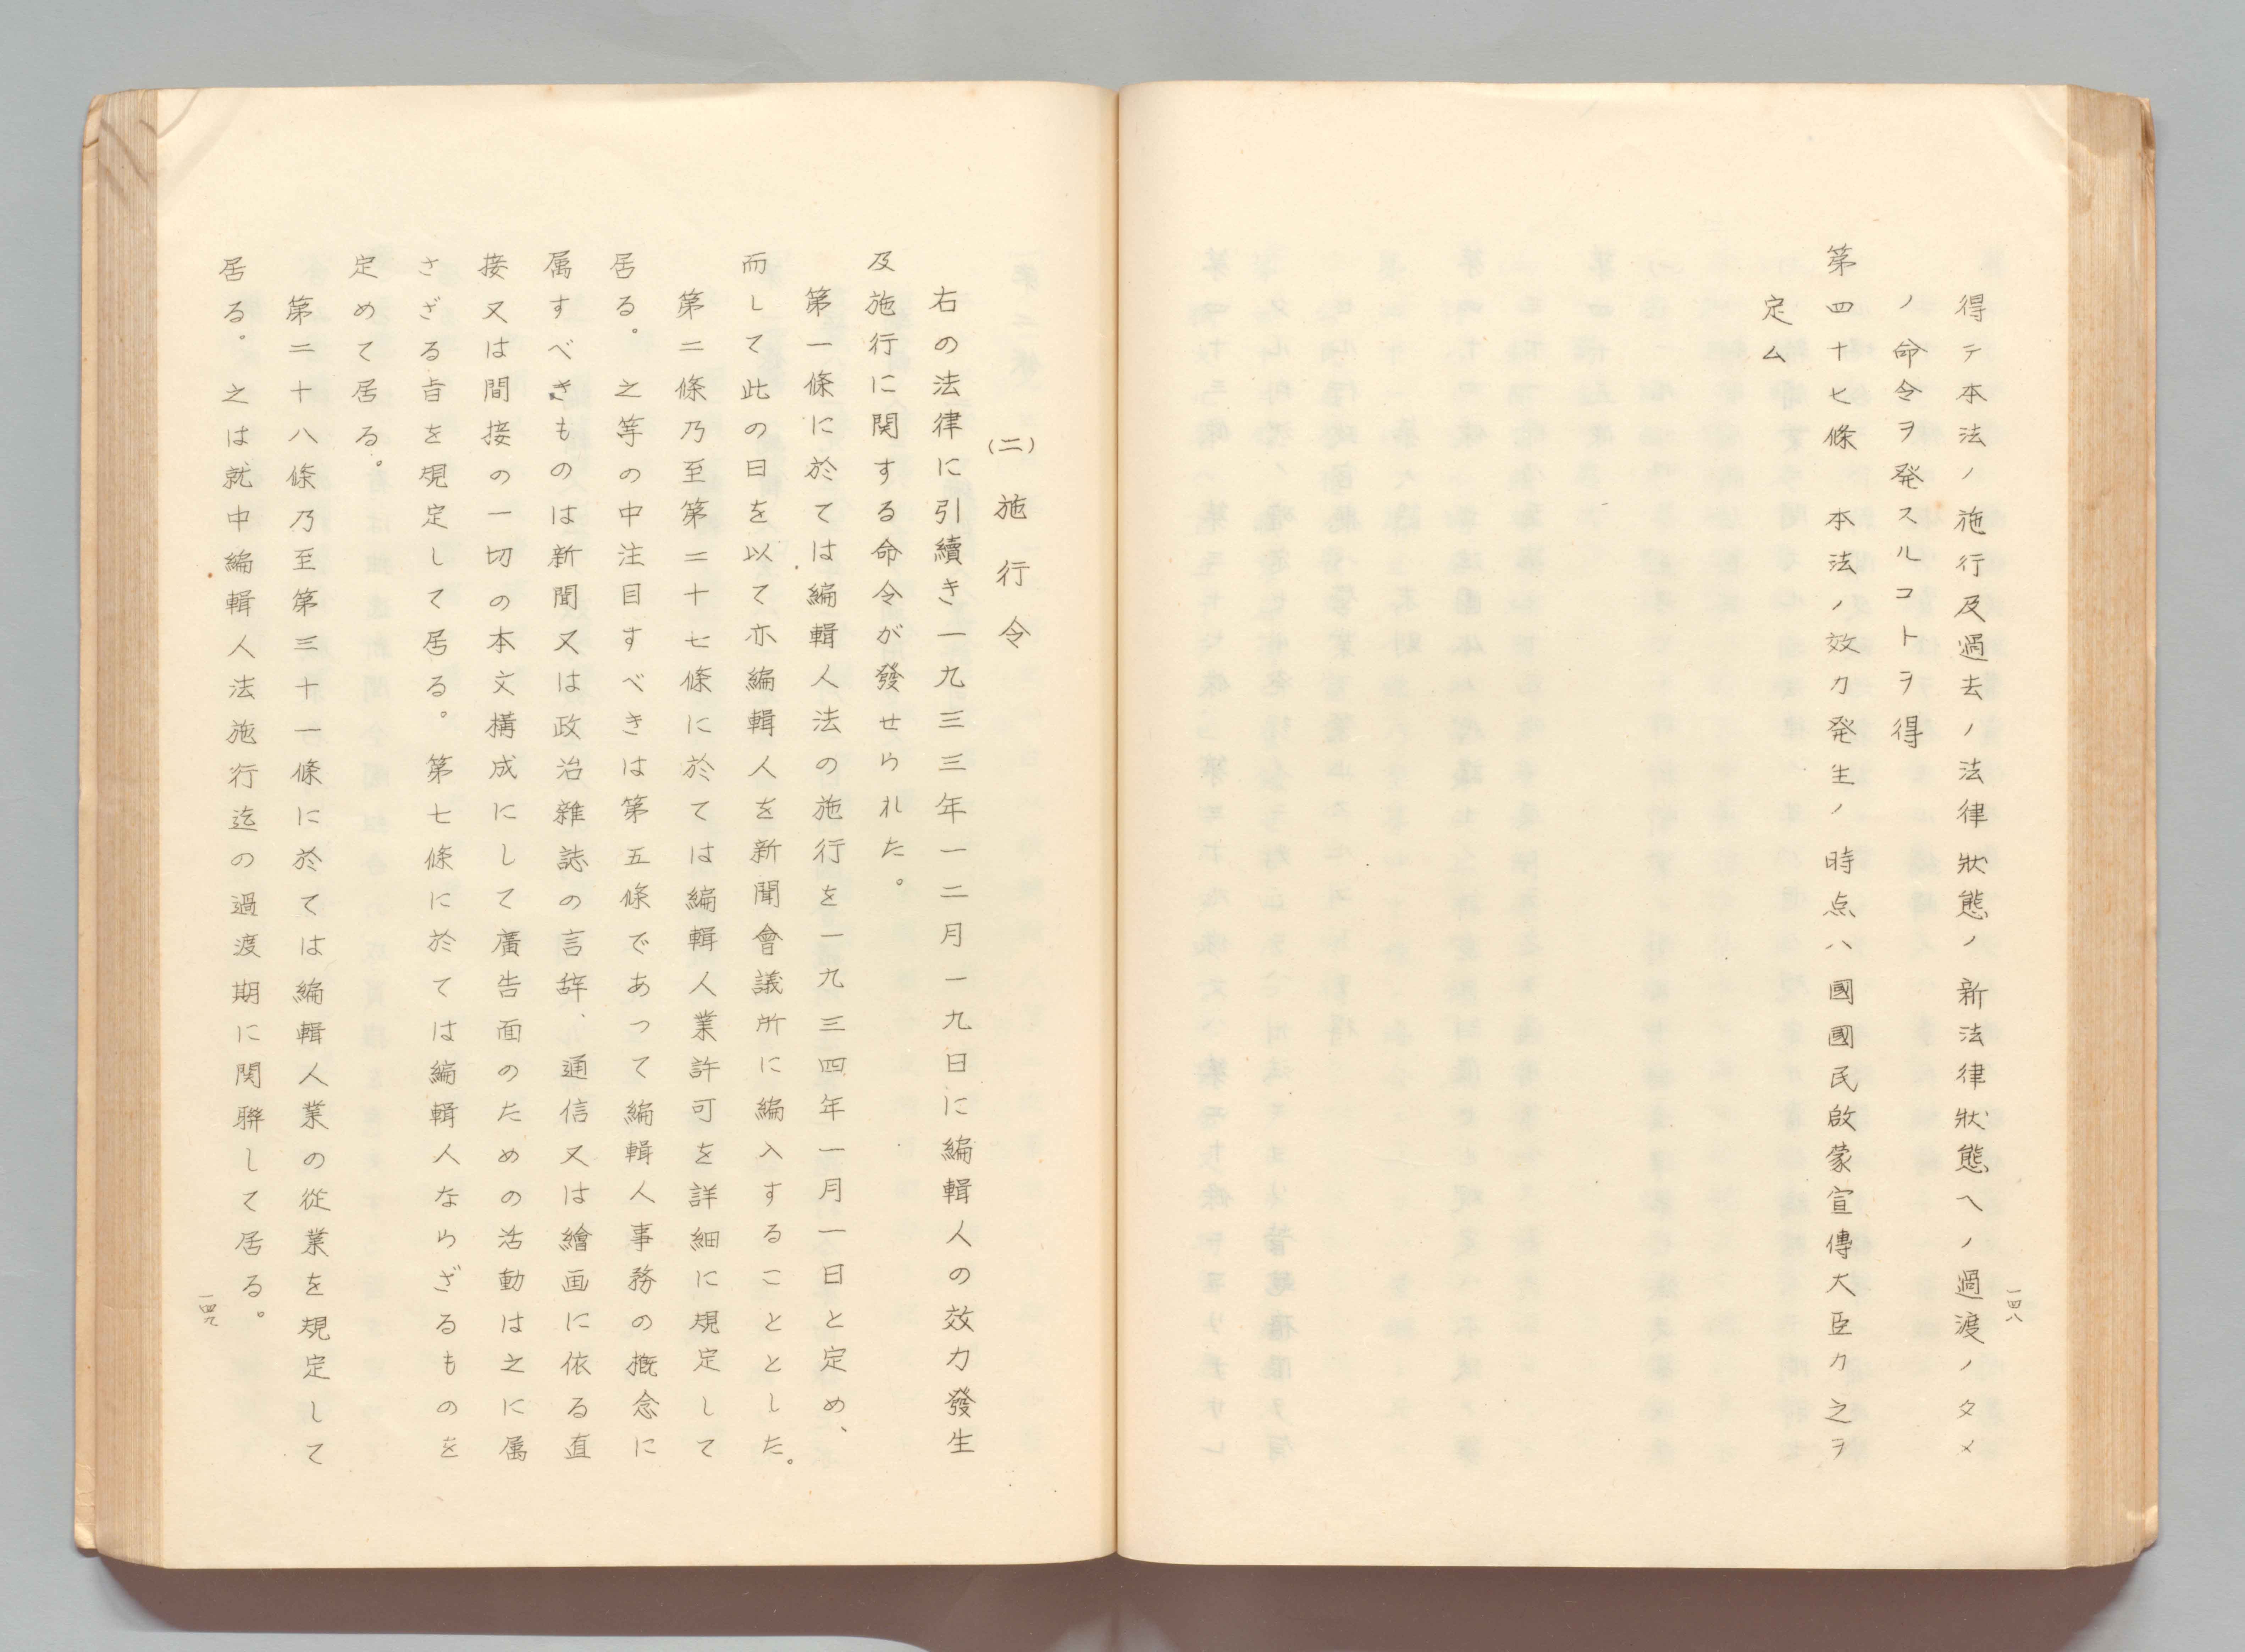 得テ本法ノ施行及過去ノ法律狀態ノ新法律狀態ヘノ過渡ノタメ
ノ命令ヲ発スルコトヲ得
第四十七條　本法ノ効力発生ノ時点ハ國國民啟蒙宣傳大臣カ之ヲ
定ム
一四八
(二)　施行令
右の法律に引續き一九三三年一二月一九日に編輯人の効力發生
及施行に関する命令が發せられた。
第一條に於ては編輯人法の施行を一九三四年一月一日と定め、
而して此の日を以て亦編輯人を新聞會議所に編入することとした。
第二條乃至第二十七條に於ては編輯人業許可を詳細に規定して
居る。之等の中注目すべきは第五條であつて編輯人事務の概念に
属すべきものは新聞又は政治雜誌の言辞、通信又は繪画に依る直
接又は間接の一切の本文構成にして廣告面のための活動は之に属
さざる旨を規定して居る。第七條に於ては編輯人ならざるものを
定めて居る。
第二十八條乃至第三十一條に於ては編輯人業の從業を規定して
居る。之は就中編輯人法施行迄の過渡期に関聯して居る。
一四九